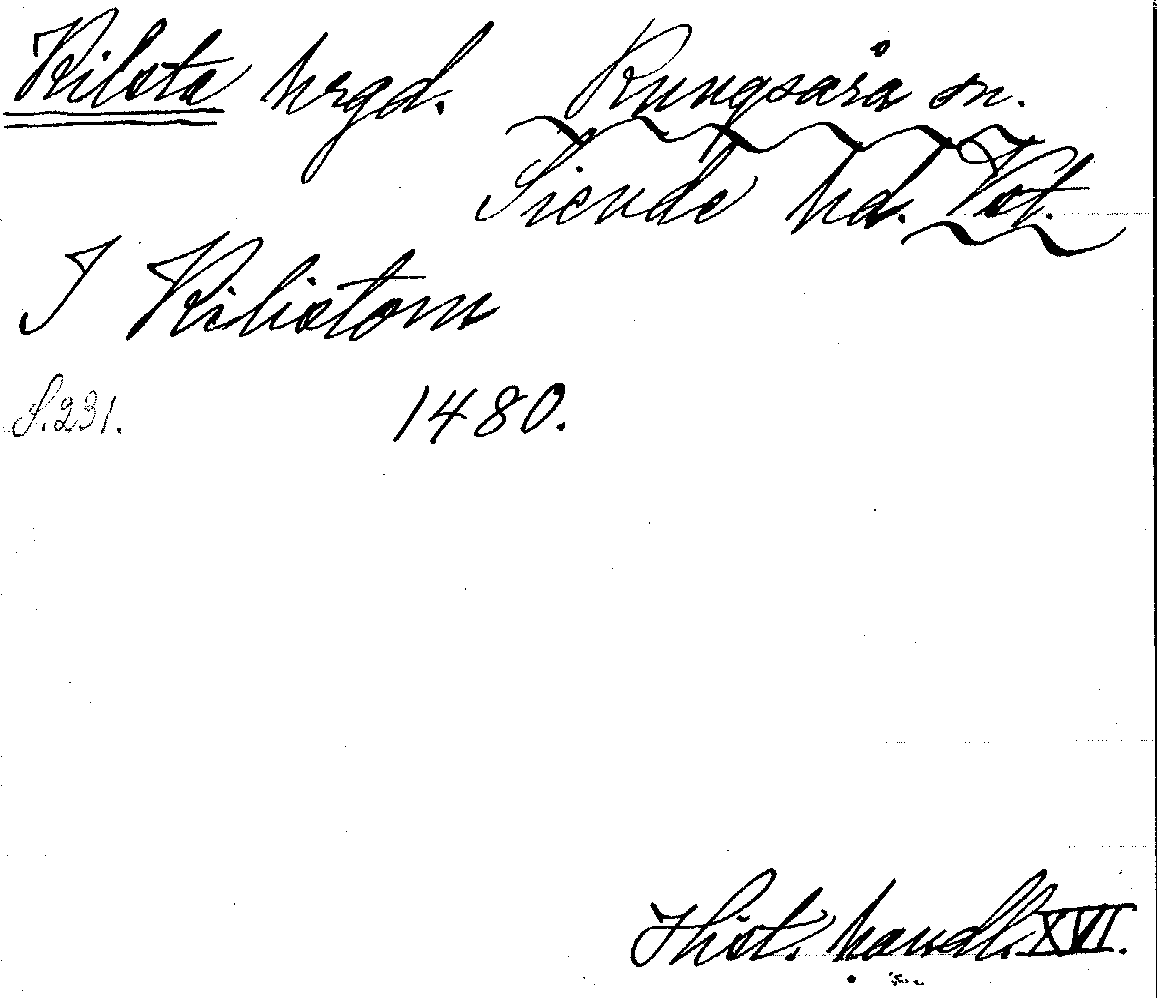 Kilsta hrgd. Kungsåra sn.
Siende hd. Vst.
I Kilistom
S. 231. 1480.
Hist. handl. XVI.